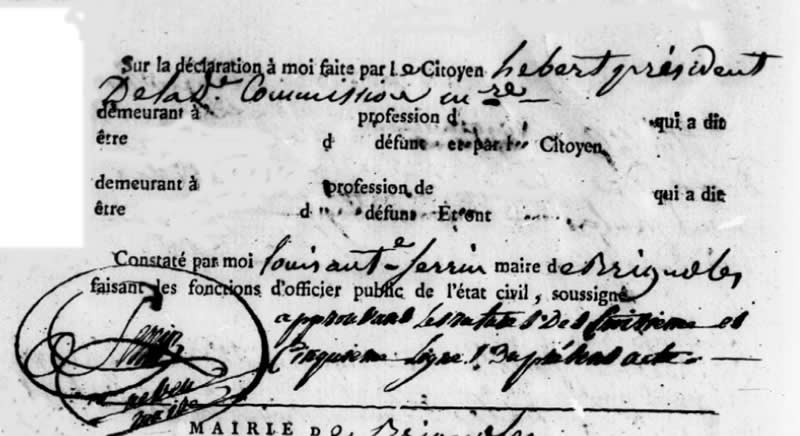 Sur la déclaration à moi faite par le Citoyen hebert président
De la d.te Commission m re
demeurant à profession d qui a dit
être d défunt et par l Citoyen
demeurant à profession de qui a dit
être d défunt Et ont
Constaté par moi louis ant.e maire de Brignolles
faisant les fonctions d'officier public de l'état civil, soussigné
approuvant Les ratures Des troisieme et
Cinquieme Lignes Du présent acte
MAIRIE DE Brignolles